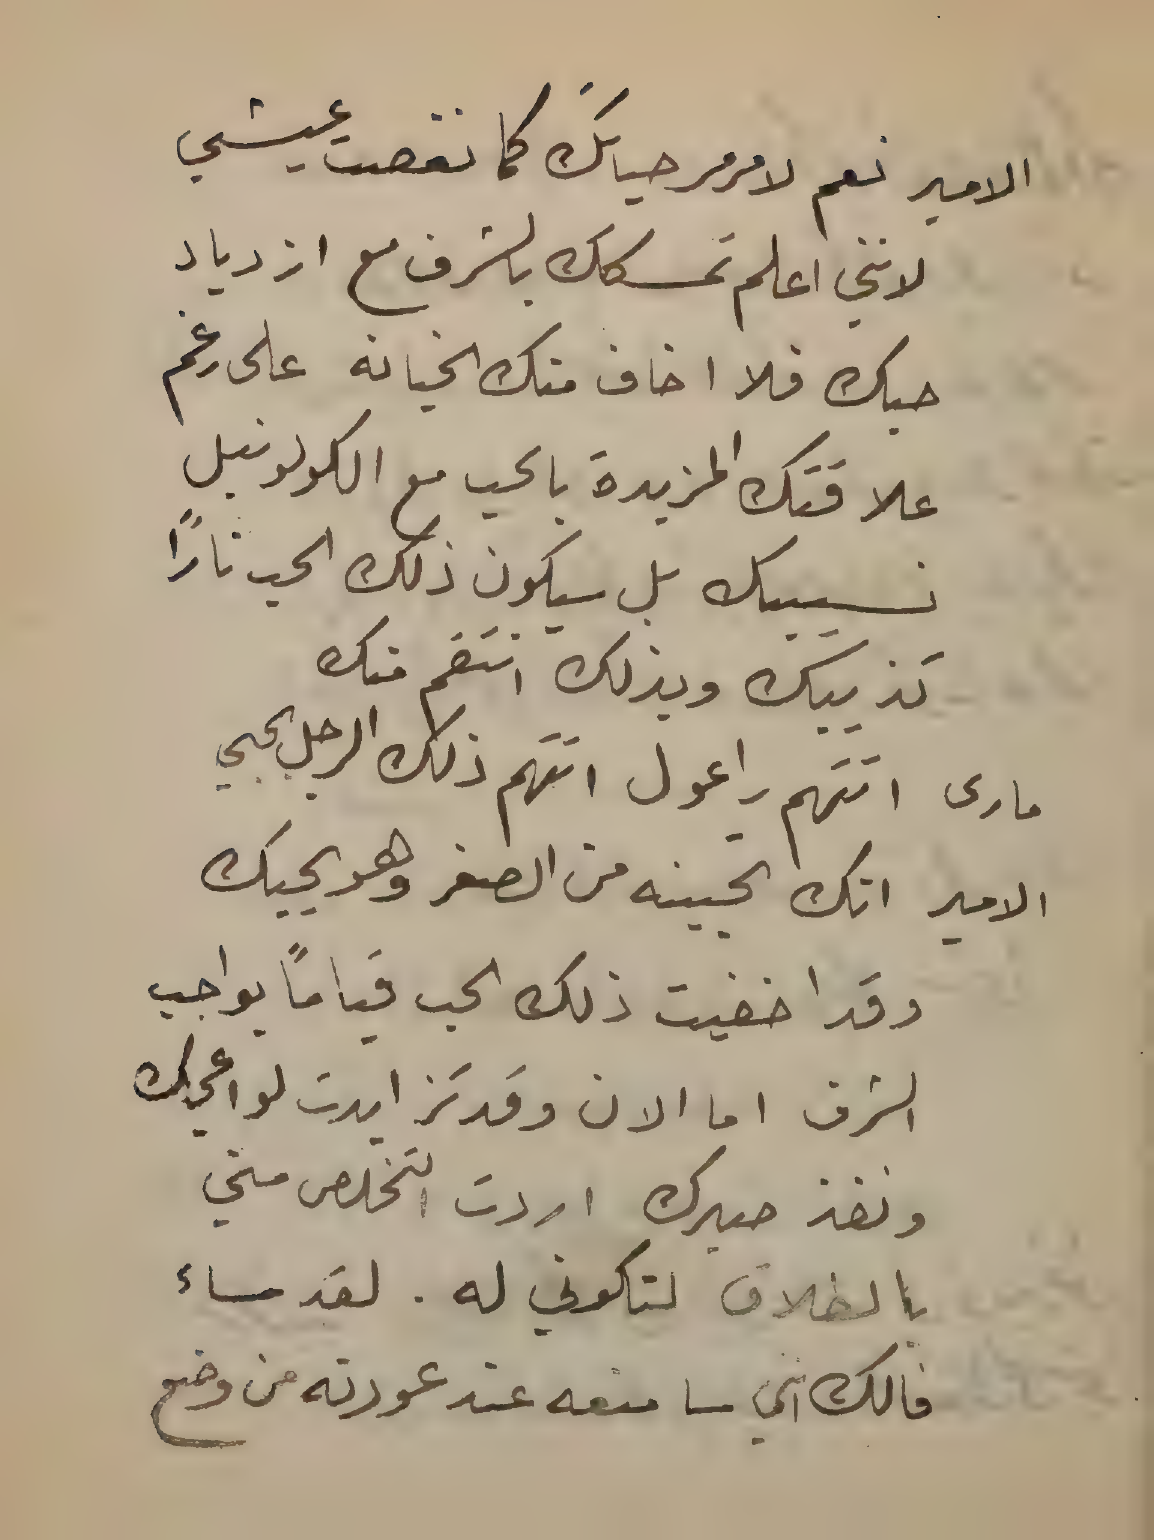 الامير نعم لامرمر حياتك كما نغصت عيشي
لانني اعلم تمسكك بالشرف مع ازدياد
حبك فلا اخاف منك الخيانه على رغم
علاقتك المزيدة بالحب مع الكولونيل
نسيبك بل سيكون ذلك الحب نارًا
تذيبك وبذلك انتقم منك
مارى اتتهم راعول اتتهم ذلك الرجل بحبي
الامير انك تحبينه من الصغر وهو يحبك
وقد اخفيت ذلك الحب قيامًا بواجب
الشرف اما الان وقد تزايدت لواعجك
ونفذ صبرك اردت التخلص مني
بالطلاق لتكوني له . لقد ساء
فالك انني سامنعه عند عودته من وضع